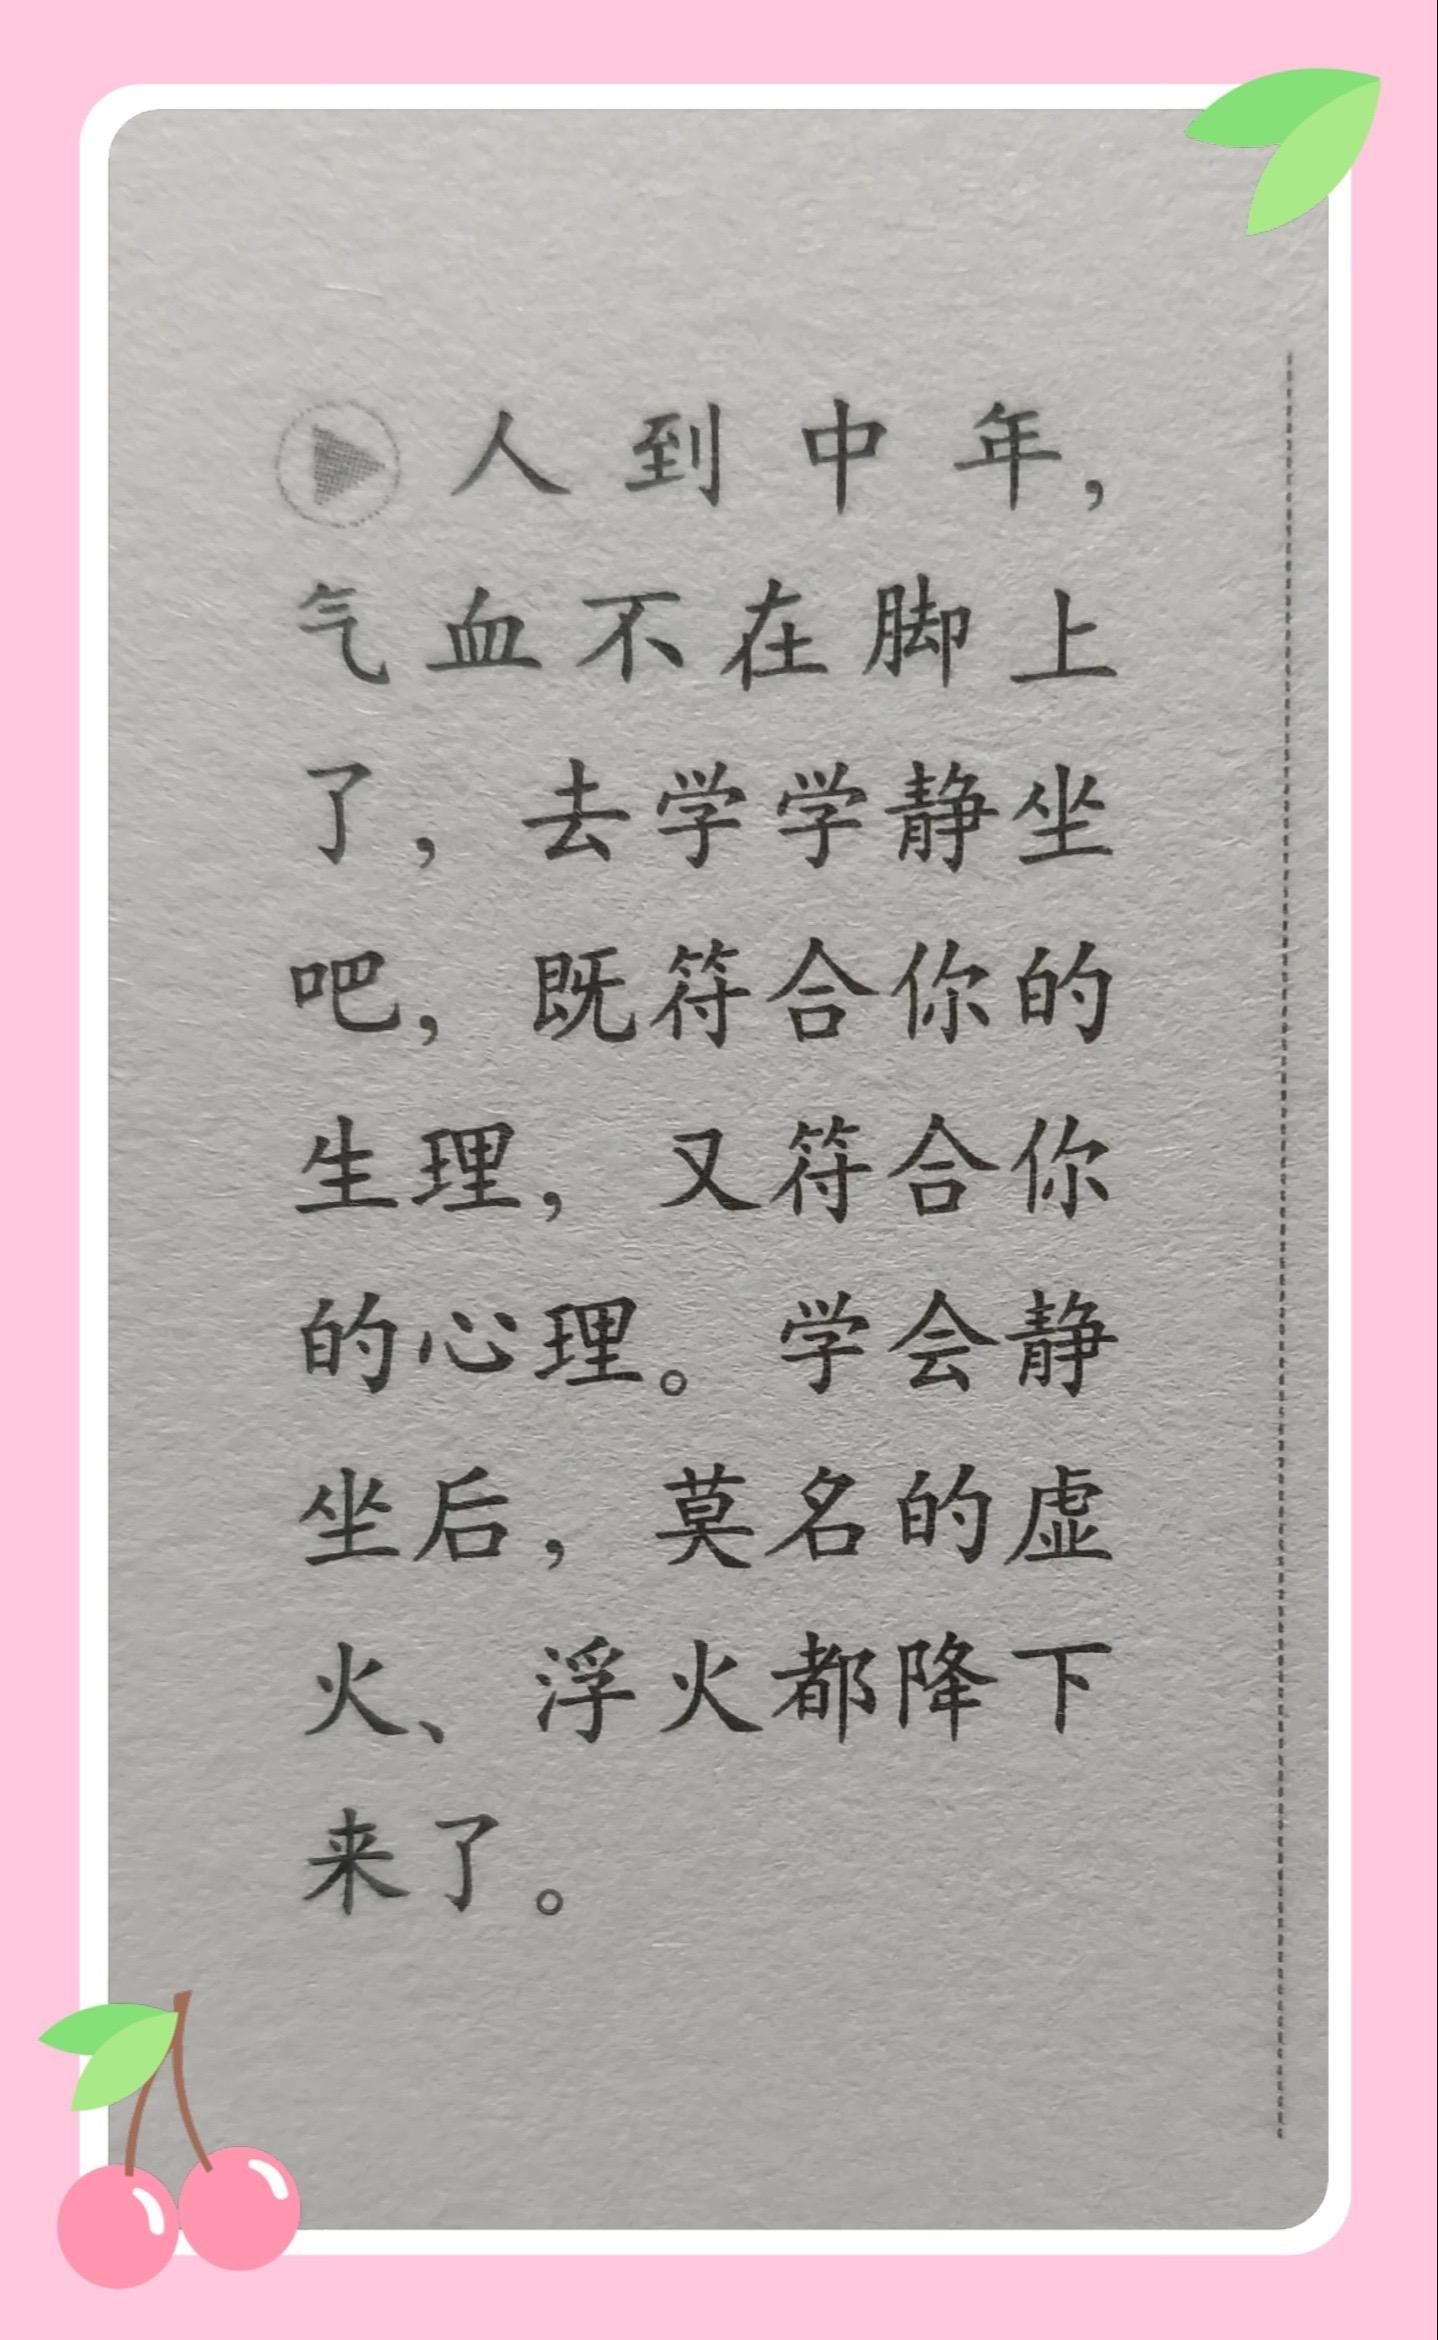 人到中年，
气血不在脚上
了，去学学静坐
吧，既符合你的
生理，又符合你
的心理。学会静
坐后，莫名的虚
火、浮火都降下
来了。